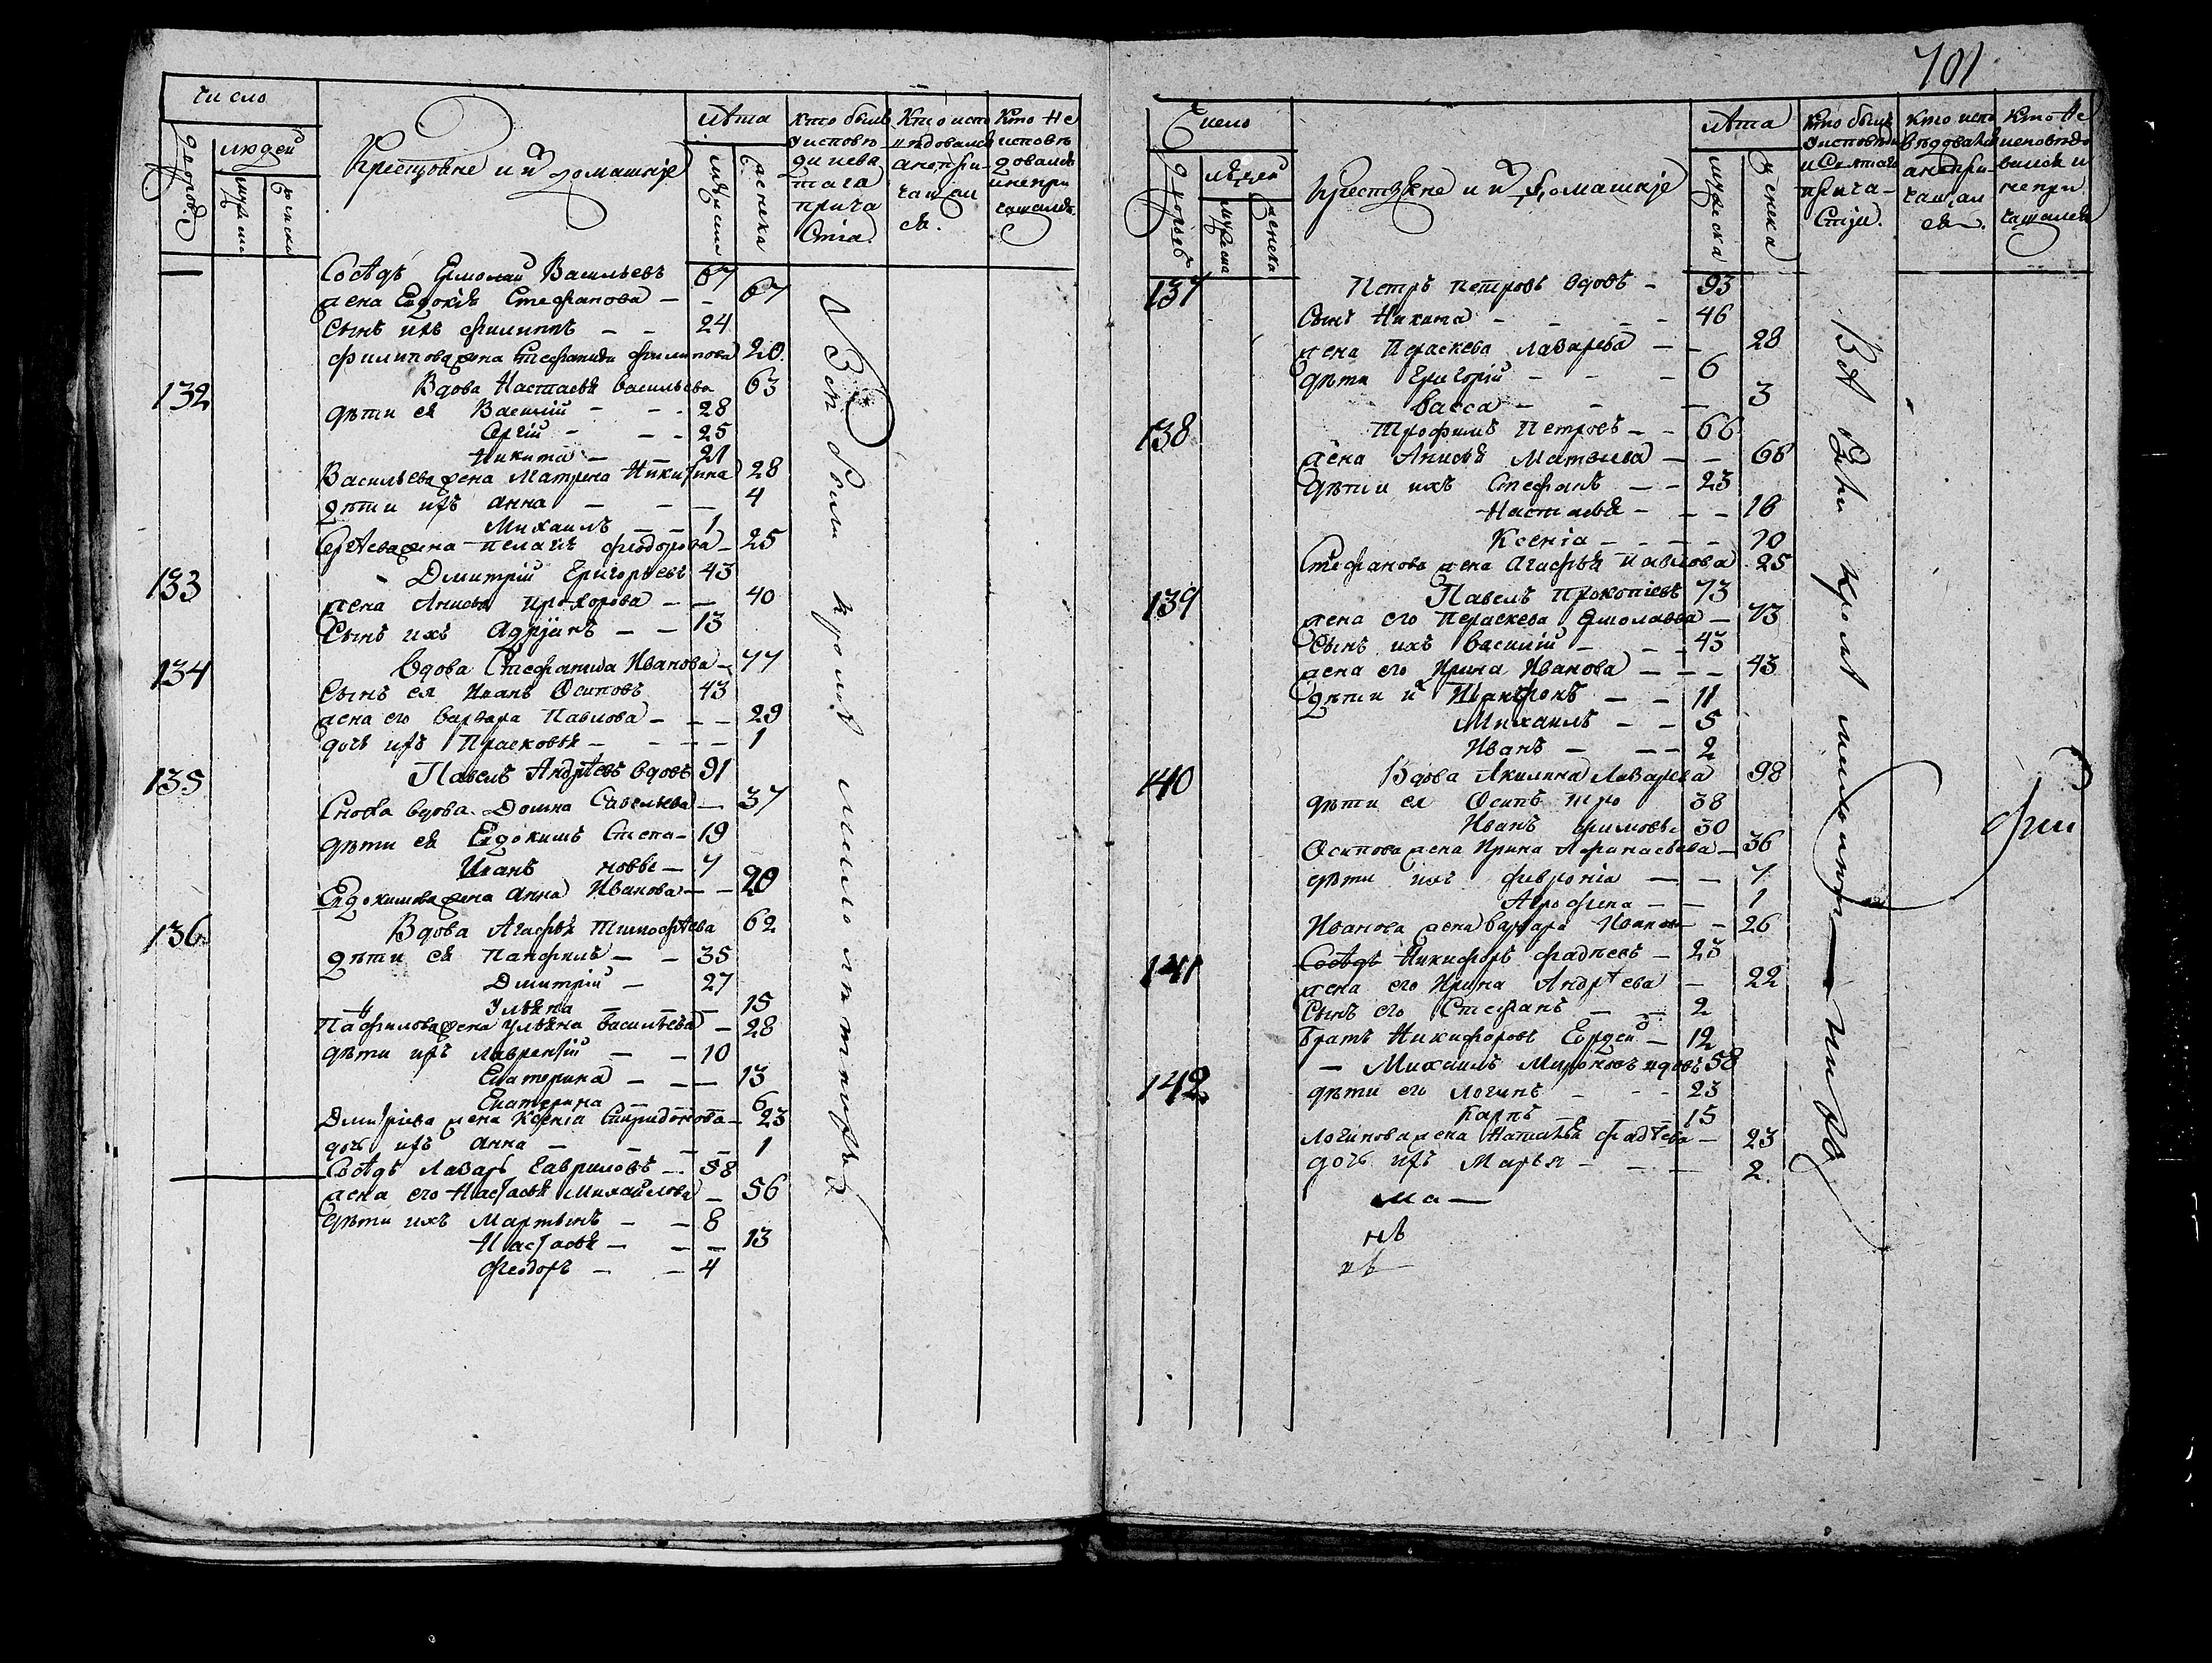 число
дворов
людей
мужска
женска
Крестьяне и их домашніе
лѣта
мужска
женска
кто былъ
у исповѣ
ди и свя
таго
прича
стіа.
Кто испо
вѣдовался
а не при
чащал
ся.
Кто не
исповѣ
довался
и не при
чащался
Сосѣдъ Ермолай Васильевъ 67
жена Евдокія Стефанова — - 67
Сынъ ихъ филиппъ - - 24
филипова жена Стефанида филипова 20.
132 Вдова Настасья васильева 63
дѣти ея Василій - - - 28
Сергій - - - 25
Никита - - 21
Васильева жена Матрена Никитина 28
дѣти ихъ анна - - - 4
Михаилъ - - 1
Сергѣева жена пелагія федорова - 25
133 Дмитрій Григорьевъ 43
жена Анисья Прохорова - - 40
Сынъ ихъ Адріянъ - - 13
134 Вдова Стефанида Иванова - 77
Сынъ ея Иванъ Осиповъ 43
жена его варвара Павлова - - - 29
дочь ихъ Прасковья - - - - 1
135 Павелъ Андрѣевъ вдовъ 91
Сноха вдова Домна Савельева - 37
дѣти ея Евдокимъ Степа- 19
Иванъ новы - 7
Евдокимова жена анна Иванова - - 20
136 Вдова Агафья Тимофѣева 62
дѣти ея Панфилъ - - 35
Дмитрій - 27
Ульяна - - - 15
Панфилова жена ульяна васильева - 28
дѣти ихъ лаврентій - - 10
Екатерина - - - 13
Екатерина - - 6
Дмитріева жена Ксенія Спиридонова - 23
дочь ихъ анна - - - - 1
Сосѣдъ Лазарь Гавриловъ - 58
жена его Настасья Михайлова - 56
дѣти ихъ Мартынъ - - 8
Настасья - - - 13
Феодоръ - - 4
Всѣ были кромѣ малолѣтнихъ
701
Число
дворовъ
людей
мужска
женска
Крестьяне и их домашніе
лѣта
мужска
женска
Кто былъ
у исповѣди
и святаго
прича-
стія.
Кто испо
вѣдовался
а не при-
чащал
ся.
Кто не
исповѣдо
вался и
не при
чащался
137 Петръ Петровъ вдовъ - 93
Сынъ Никита - - - - 46
жена Параскева лазарева - - 28
дѣти Григорій - - - 6
васса - - - 3
138 Трофимъ Петровъ - - 66
жена Анисья Матвеева - - 68
дѣти ихъ Стефанъ - - 23
Настасья - - - 16
Ксенія - - - - 10
Стефанова жена Агафья павлова 25
139 Павелъ Прокопіевъ 73
жена его Параскева Ермолаева - 73
Сынъ ихъ василій - - - 43
жена его Ирина Иванова - - - 43
дѣти их Ксенофонъ - - 11
Михаилъ - - 5
Иванъ - - - 2
140 Вдова Акилина Лазарева 98
дѣти ея Осипъ тро 38
Иванъ фимовы 30
Осипова жена Ирина Афанасьева - 36
дѣти ихъ февронія - - 7
Аграфена - - 1
Иванова жена варвара Иванова - 26
141 Сосѣдъ Никифоръ фадеевъ - 23
жена его Ирина Андрѣева - 22
Сынъ его Стефанъ - - 2
Братъ Никифоровъ Гордей - 12
142 — Михаилъ Мироновъ вдовъ 58
дѣти его Логинъ - - - 23
Карпъ - - - 15
Логинова жена Наталья фадѣева - 23
дочь ихъ Марья - - - 2.
Ма —
нѣ
нѣ
Всѣ были кромѣ малолѣтнихъ